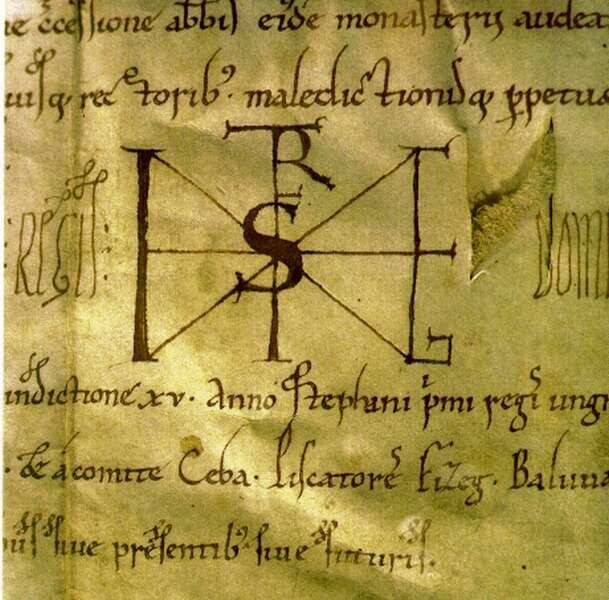 cessione abbis eide monasterii audea
rectorib; maledictionisq; ppetua
REGIS DOMI
indictione xv. Anno Stephani pmi regis ungr
de a comite Ceba. Piscatores Fizeg. Baluua
siue presentib; siue futuris.